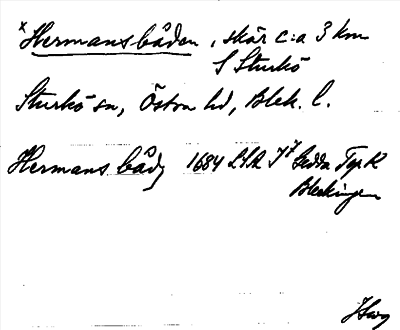 *Hermansbåden, skär c:a 3 km
S Sturkö
Sturkö sn, Östra hd, Blek. l.
Hermans båd 1684 LSA Gedda Top K
Bleckingen